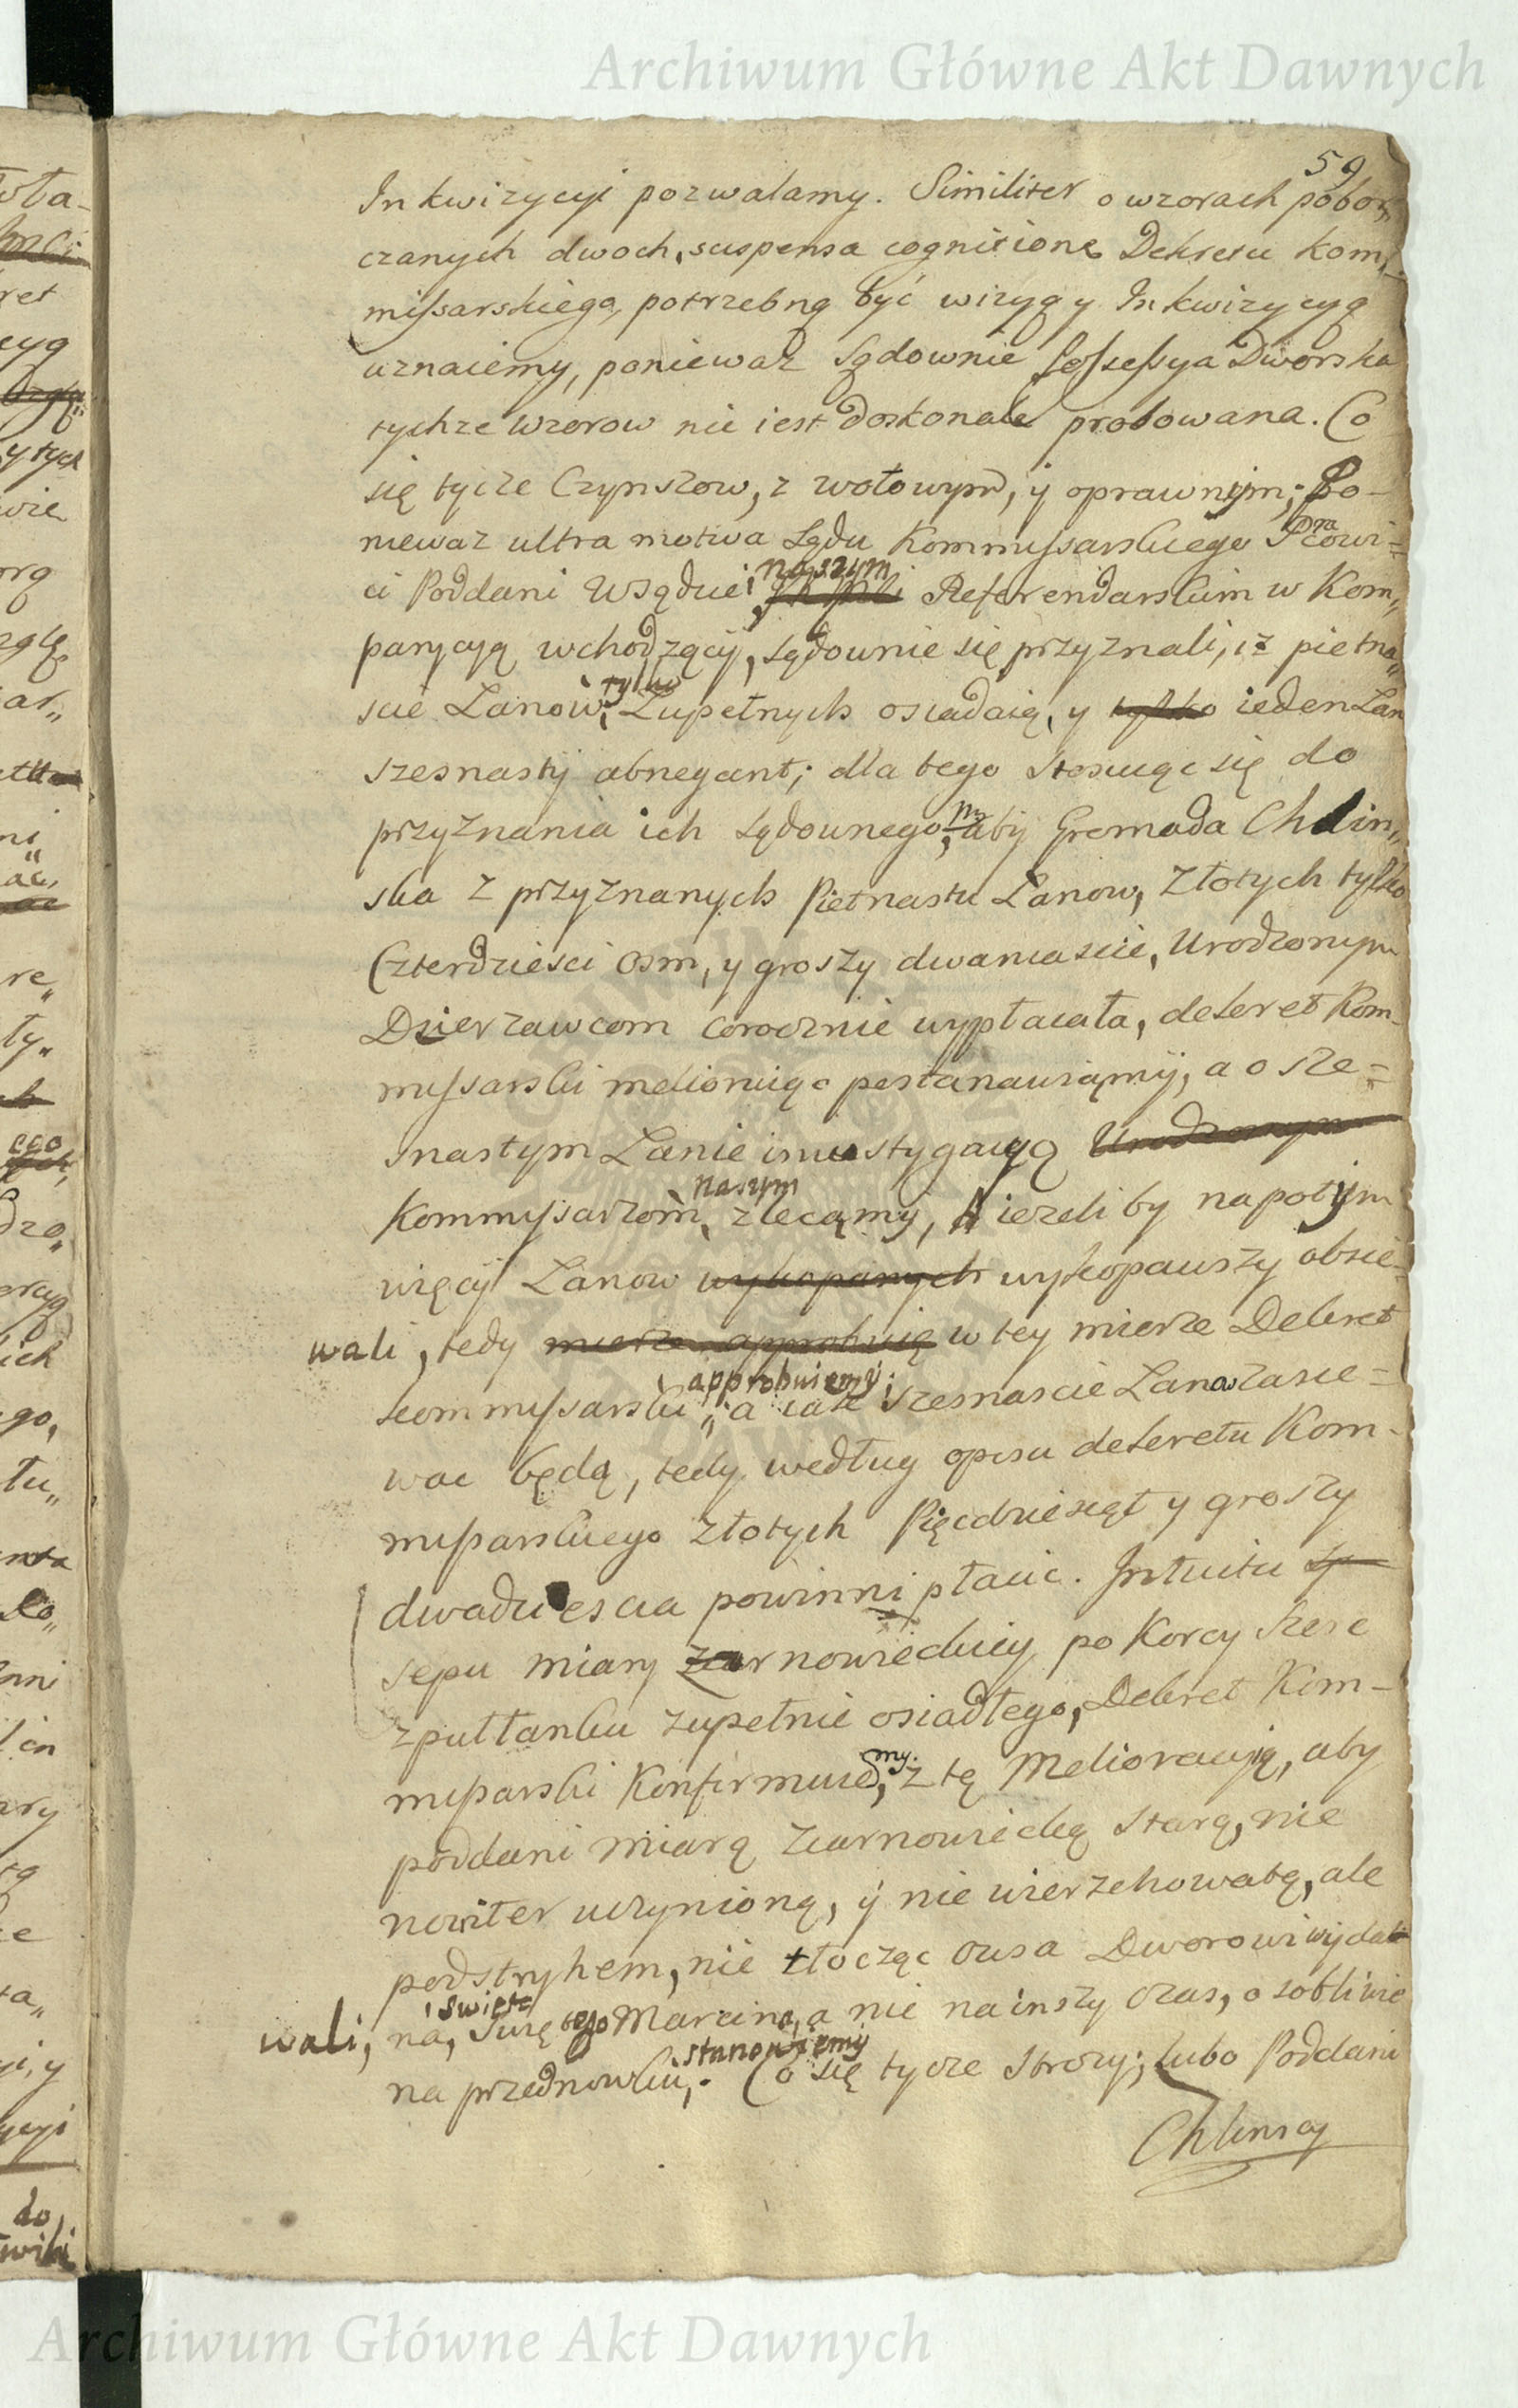 Archiwum Główne Akt Dawnych
59
Inkwizycyi pozwalamy. Similiter o wzorach pobor„
czanych dwoch, suspensa cognitione Dekretu Kom„
missarskiego, potrzebną być wizyą y Inkwizycyą
uznaiemy, ponieważ Sądownie Possessya Dworska
tychże wzorow nie iest doskonale probowana. Co
się tycze Czynszow, z wołowym, y oprawnym; Po-
nieważ ultra motiva Sądu Kommissarskiego Pracowi=
ci Poddani Wsądzie naszym Referendarskim w Kom„
parycyą wchodzący, sądownie się przyznali, iż pietna„
scie Lanow, tylko Zupełnych osiadaią, y tylko ieden Lan
szesnasty abnegant; dla tego stosuiąc się do
przyznania ich sądownego, aby Gromada Chlin„
ska z przyznanych Pietnastu Lanow, Złotych tylko
Czterdziesci Osm, y groszy dwanascie, Urodzonym
Dzierzawcom corocznie wypłacała, dekret Kom-
missarski melioruiąc postanawiamy, a o sze=
snastym Lanie inwestygacyą Urodzonym
Kommissarzom, naszym zlecamy, A iezeliby napotym
więcy Lanow wykopanych wykopawszy obsie=
wali, tedy w tey mierze Dekret
kommissarski approbuiemy; a iak szesnascie Lanow zasie=
wac będą, tedy według opisu dekretu Kom-
missarskiego Złotych Pięcdziesiąt y groszy
dwadziescia powinni płacic. Intuitu
sepu miary zarnowieckiey po Korcy szesc
z pułłanku zupełnie osiadłego, Dekret Kom-
missarski Konfirmuiemy, z tą Melioracyią, aby
poddani miarą zarnowiecką starą, nie
noviter uczynioną, y nie wierzchowatą, ale
podstryhem, nie tłocząc Owsa Dworowi wyda
wali, na swięto Swię tego Marcina, a nie na inszy czas, osobliwie
na przednowku, stanowiemy. Co się tycze Strozy; lubo Poddani
Chlinscy
Archiwum Główne Akt Dawnych